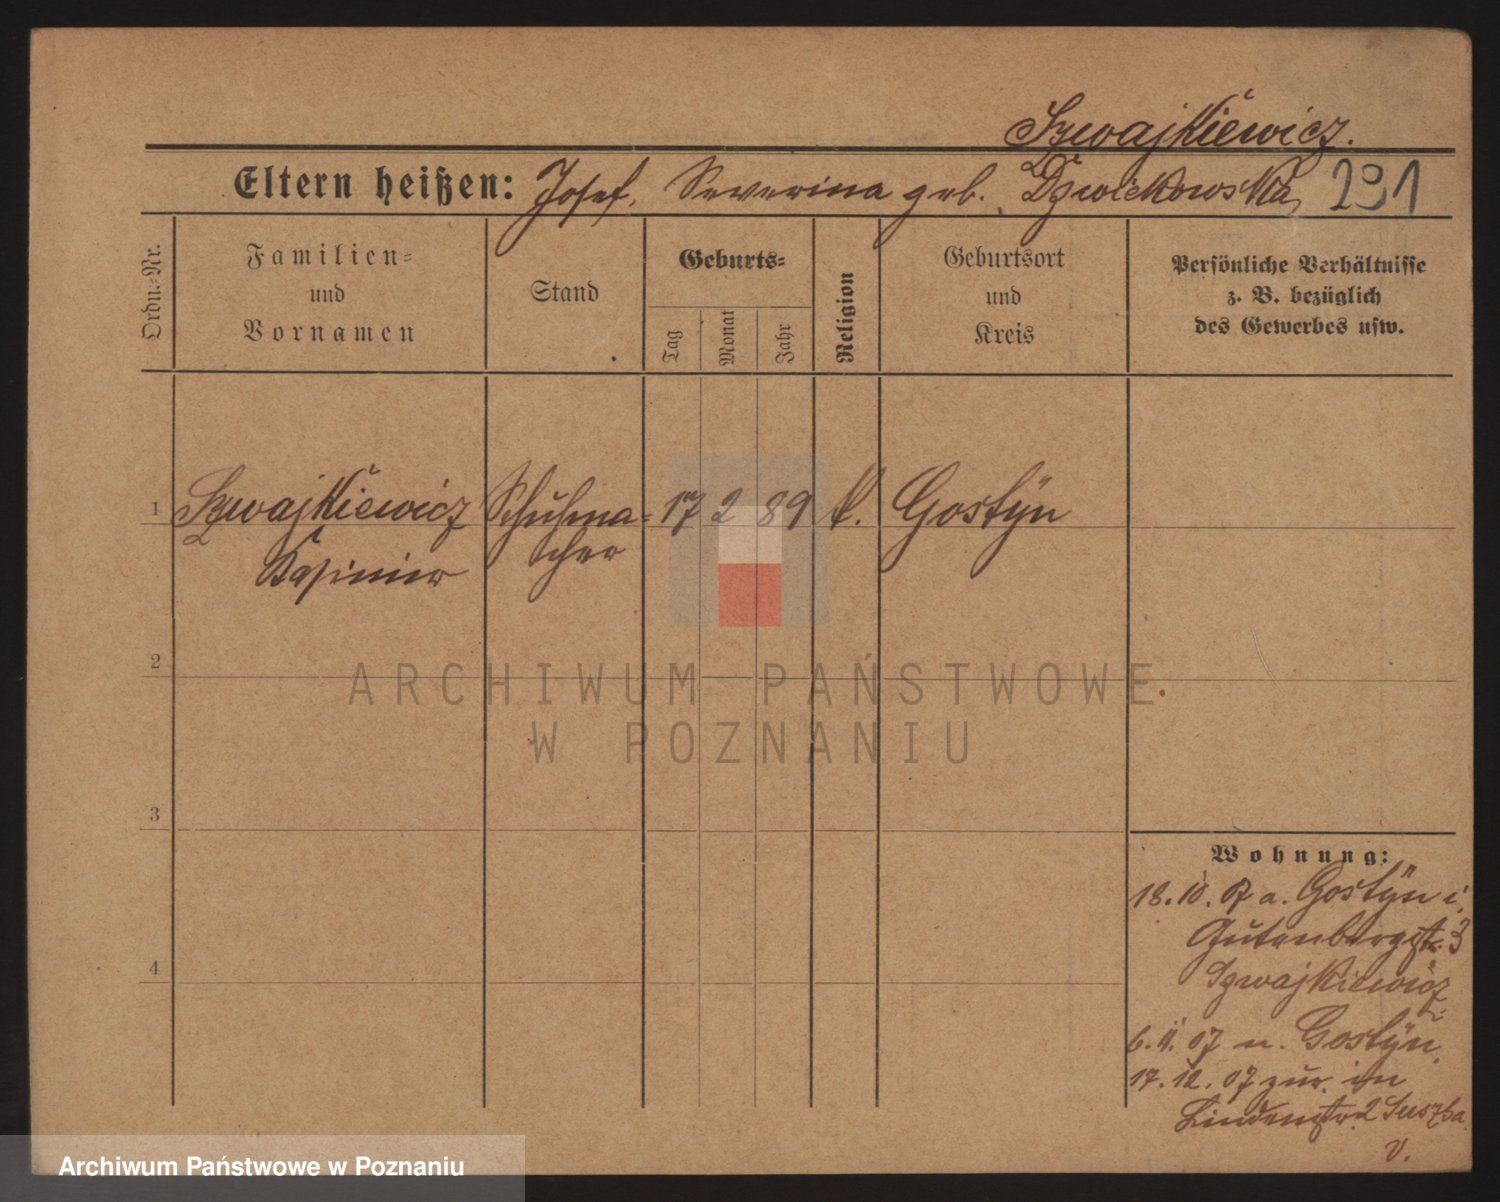 Szwajkiewicz.
Eltern heißen: Josef, Severina geb. Dzwickowska 291
Ordn.-Nr.
Familien-
und
Vornamen
Stand
Geburts-
Tag
Monat
Jahr
Religion
Geburtsort
und
Kreis
Persönliche Verhältnisse
z. B. bezüglich
des Gewerbes usw.
1 Szwajkiewicz Schuhma- 17 2 89 k. Gostyn
Kasimir cher
2
ARCHIWUM PAŃSTWOWE
W POZNANIU
3
4
Wohnung:
18. 10. 07 a. Gostyn i.
Gutenbergstr. 3
Szwajkiewicz
6. 11. 07 n. Gostyn.
17. 12. 07 zur. in
Lindenstr. 2
v.
Archiwum Państwowe w Poznaniu